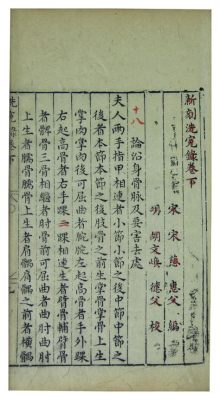 新刻洗冤錄卷下
宋 宋慈 惠父 編
明 胡文煥 德父 校
十八 論沿身骨脉及要害去處
夫人兩手指甲相連者小節小節之後中節中節之
後者本節本節之後肢骨之前生掌骨掌骨上生
掌肉掌肉後可屈曲者腕腕左起高骨者手外踝
右起高骨者右手踝二踝相連生者臂骨輔臂骨
者髀骨三骨相繼者肘骨前可屈曲者曲肘曲肘
上生者臑骨臑骨上生者肩髃肩髃之前者橫髃
洗冤錄卷下